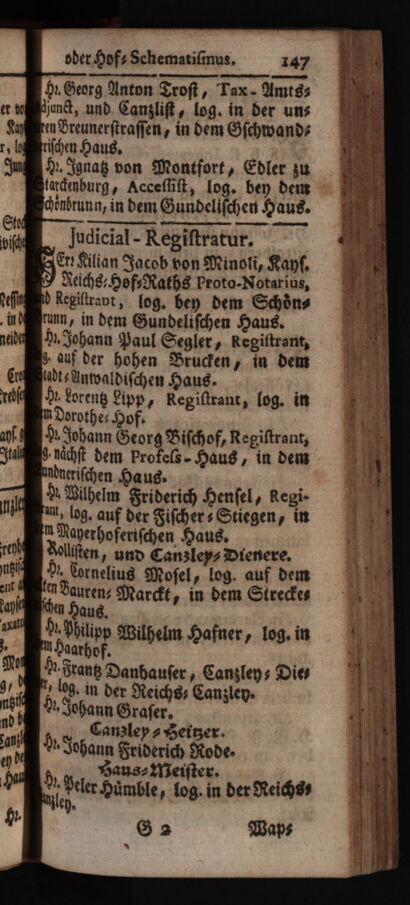 oder Hof-Schematismus. 147
Hr. Georg Anton Trost, Tax-Amts-
Adjunct, und Canzlist, log. in der un-
ren Breunerstrassen, in dem Gschwand-
nerischen Haus.
Hr. Ignatz von Montfort, Edler zu
Starckenburg, Accessist, log. bey dem
Schönbrunn, in dem Gundelischen Haus.
Judicial-Registratur.
HErr Kilian Jacob von Minoli, Kays.
Reichs-Hof-Raths Proto-Notarius,
und Registrant, log. bey dem Schön-
brunn, in dem Gundelischen Haus.
Hr. Johann Paul Segler, Registrant,
log. auf der hohen Brucken, in dem
Stadt-Anwaldischen Haus.
Hr. Lorentz Lipp, Registrant, log. in
dem Dorothe-Hof.
Hr. Johann Georg Bischof, Registrant,
log. nächst dem Profess-Haus, in dem
undnerischen Haus.
Hr. Wilhelm Friderich Hensel, Regi-
strant, log. auf der Fischer-Stiegen, in
dem Mayerhoferischen Haus.
Rollisten, und Canzley-Dienere.
Hr. Cornelius Mosel, log. auf dem
alten Bauren-Marckt, in dem Strecke-
ischen Haus.
Hr. Philipp Wilhelm Hafner, log. in
dem Haarhof.
Hr. Frantz Danhauser, Canzley-Die-
ner, log. in der Reichs-Canzley.
Hr. Johann Graser.
Canzley-Heitzer.
Hr. Johann Friderich Rode.
Haus-Meister.
Hr. Peter Hümble, log. in der Reichs-
Canzley.
G 2 Wap-